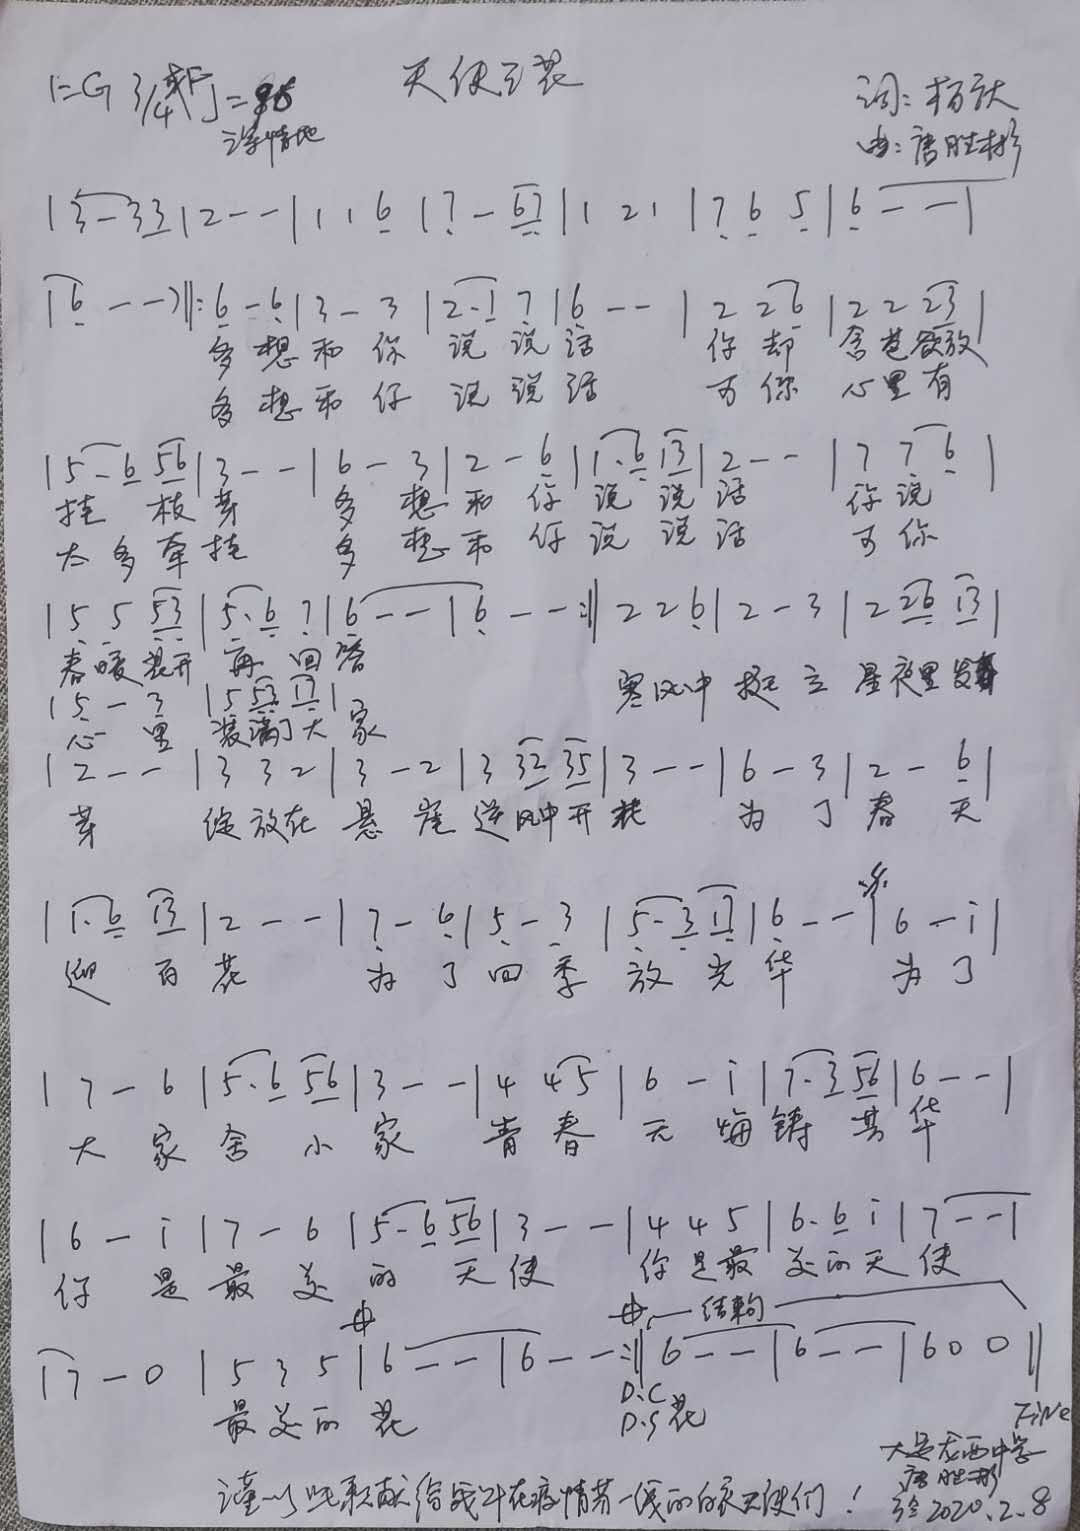 天使之花
1=G 3/4 或F ♩=96
深情地
词:杨跃
曲:唐胜彬
| 3 - 33 | 2 - - | 1 1 6 | 7 - 67 | 1 2 1 | 7 6 5 | 6 - - |
| 6 - - :‖: 6 - 6 | 3 - 3 | 2·1 7 | 6 - - | 2 2 6 | 2 2 23 |
多想和你说说话 你却含苞欲放
多想和你说说话 可你心里有
| 5·6 56 | 3 - - | 6 - 3 | 2 - 6 | 1·6 13 | 2 - - | 7 7 6 |
挂枝芽 多想和你说说话 你说
太多牵挂 多想和你说说话 可你
| 5 5 53 | 5·6 7 | 6 - - | 6 - - :‖ 2 2 6 | 2 - 3 | 2 26 13 |
春暖花开再回答 寒风中挺立 星夜里发
| 5 - 3 | 5 53 17 |
心里装满了大家
| 2 - - | 3 3 2 | 3 - 2 | 3 32 35 | 3 - - | 6 - 3 | 2 - 6 |
芽 绽放在悬崖逆风中开花 为了春天
| 1·6 13 | 2 - - | 7 - 6 | 5 - 3 | 5·3 17 | 6 - - | 6 - i |
迎百花 为了四季放光华 为了
| 7 - 6 | 5·6 56 | 3 - - | 4 45 | 6 - i | 7·3 56 | 6 - - |
大家舍小家 青春无悔铸芳华
| 6 - i | 7 - 6 | 5·6 56 | 3 - - | 4 4 5 | 6·6 i | 7 - - |
你是最美的天使 你是最美的天使
结束句
| 7 - 0 | 5 3 5 | 6 - - | 6 - - :‖ 6 - - | 6 - - | 6 0 0 ‖
最美的花 D.C
D.S 花
Fine
大足龙西中学
唐胜彬
谨以此歌献给战斗在疫情第一线的白衣天使们!
2020.2.8